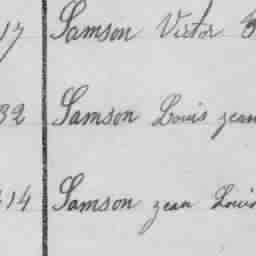 17 Samson Victor
32 Samson Louis jean
14 Samson jean Louis